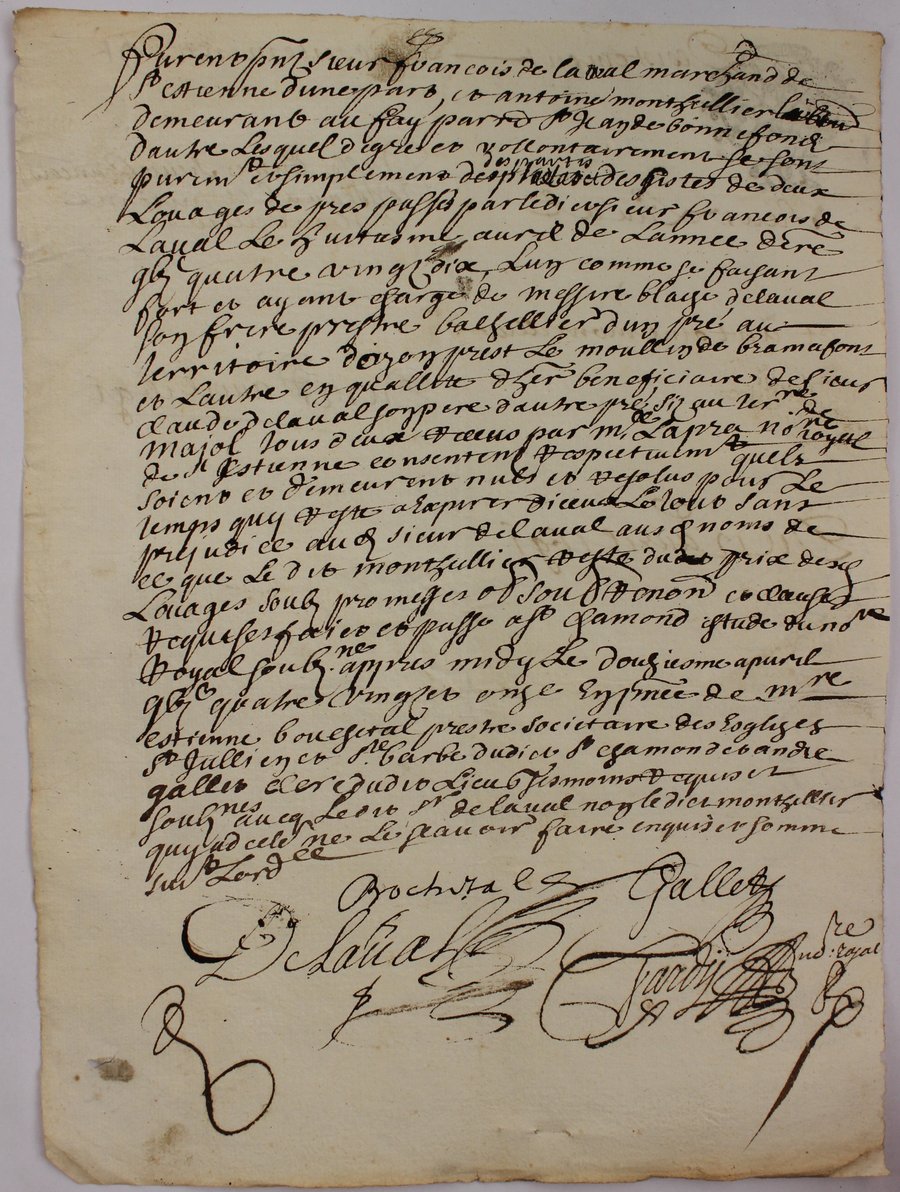 Furent pnt sieur francois de laval marchand de
st estienne dune part, et antoine monthellier
demeurant au fay par st Jean de bonnefond
dautre Lesquel degre et vollontairement se sont
purem et simplement despartis des pistes de deux
Louages de pres passes par ledict sieur francois de
Laval Le huitiesme auril de Lannee dere
gbi quatre vingt dix, Lun comme se faisant
fort et ayant charge de messire blaise delaval
son frere prestre bachellier dun pré au
territoire dozon prest Le moullin de bramafont
et Lautre en quallitte dher beneficiaire de sieur
claude delaval son pere dautre pré sis au terre de
majol tous deux receus par me Lapra nore royal
de st Estienne consentent respectiuemt quelz
soient et demeurent nuls et resolus pour Le
temps quy reste a expirer diceux Le tout sans
prejudice aud sieur delaval aux d noms de
ce que Le dit monthellier reste du det prix desd
Louages soubz promesses ob soub renon et clauses
requises faict et passé a st chamond estude du nore
Royal soubz.ne appres midy Le douziesme apuril
gbi quatre vingt et onze En pnce de mre
estienne bouchetal prestre societaire des Esglizes
st Jullien et ste barbe dudict st chamond et andre
gallet clerc dudit Lieu tesmoins requis et
soubznes auec Ledit sr delaval non ledict monthellier
quy a declé ne Le scauoir faire enquis et sommé
suit Lordce
Bochetal Gallet
Delaval Tardy nore royal